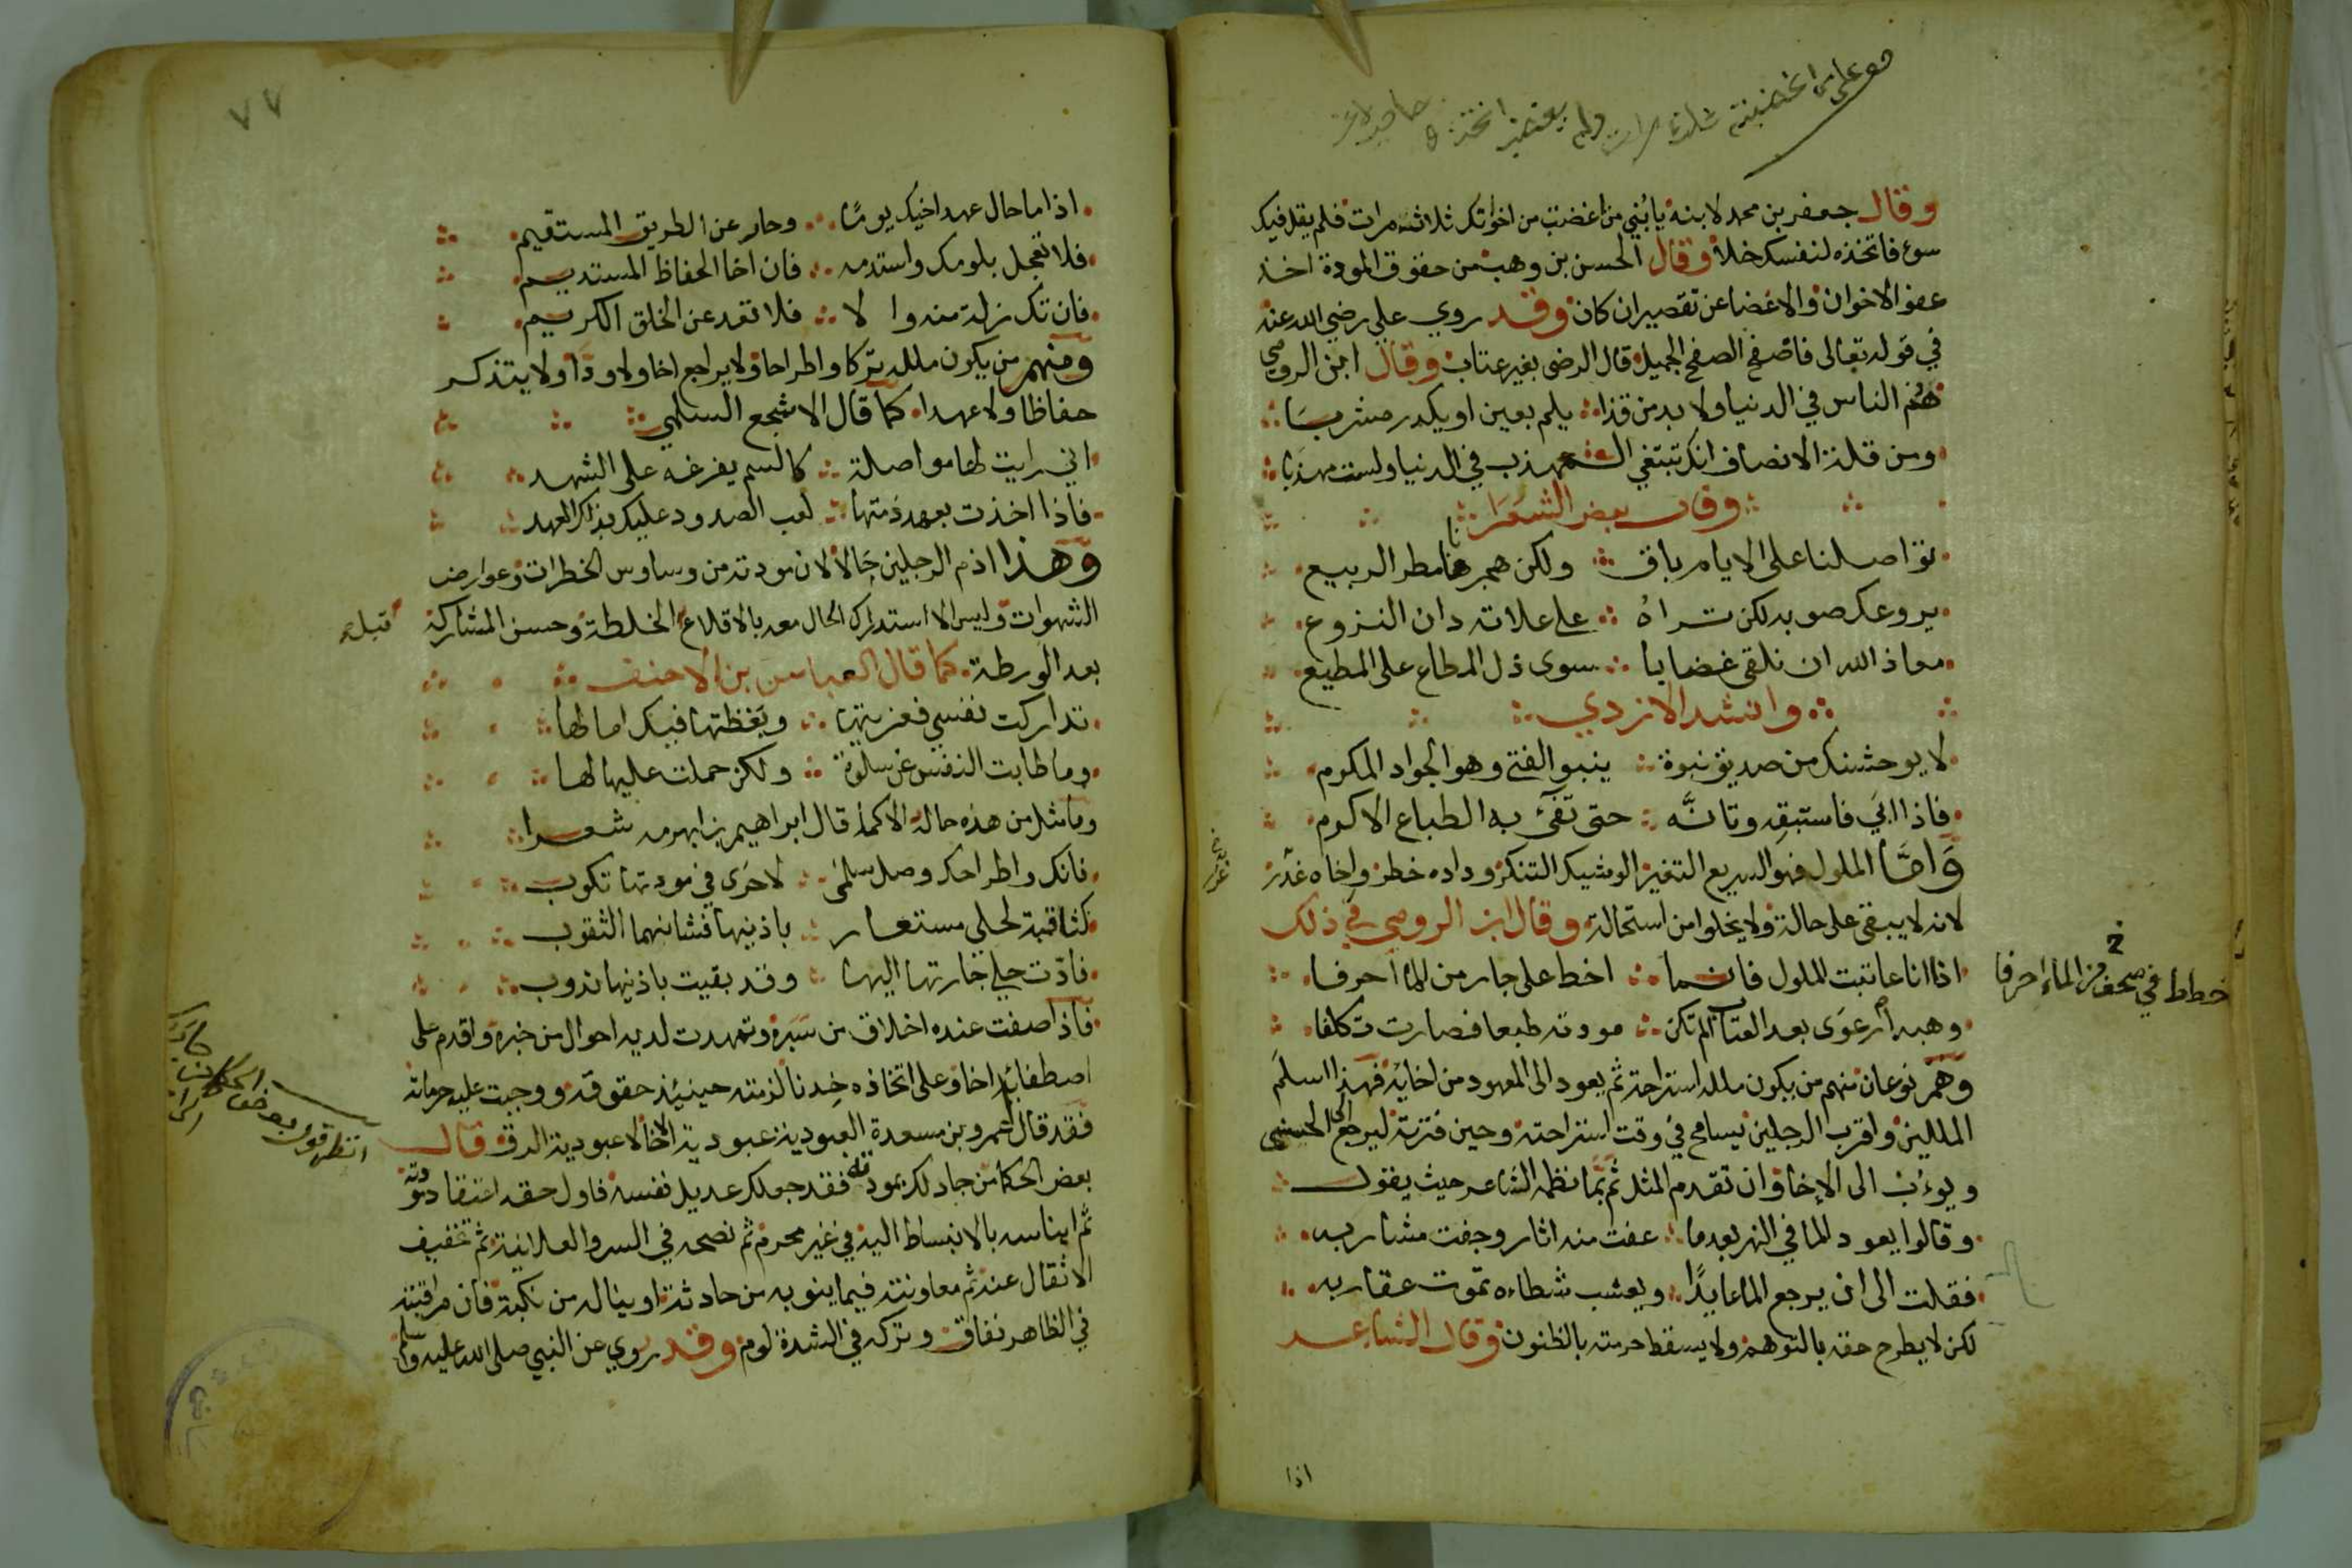 وقال جعفر بن محمد لابنه يا بُني من اغضبت من اخوانك ثلاث مرات فلم يقل فيك
سوء فاتخذه لنفسك خلا وقال الحسن بن وهب من حقوق المودة اخذ
عفو الاخوان والاغضا عن تقصير ان كان وقد روي علي رضي الله عنه
في قوله تعالى فاصفح الصفح الجميل قال الرضى بغير عتاب وقال ابن الرومي
هم الناس في الدنيا ولا بد من قذا يلم بعين او يكدر مشربا
ومن قلة الانصاف انك تبتغي المهذب في الدنيا ولست مهذبا
وقال بعض الشعرا
تواصلنا على الايام باق ولكن هجرنا مطر الربيع
يروعك صوبه لكن تراه على علاته دان النزوع
معاذ الله ان نلقى غضابا سوى ذل المطاع على المطيع
وانشد الازدي
لا يوحشنك من صديق نبوة ينبو الفتى وهو الجواد المكرم
فاذا ابي فاستبقه وتانه حتى تفيء به الطباع الاكرم
واما الملول فهو السريع التغير الوشيك التنكر وداده خطر واخاه غدر
لانه لا يبقى على حالة ولا يخلوا من استحالة وقال ابن الرومي في ذلك
اذا انا عاتبت الملول فانما اخط على جار من الما احرفا
وهبه ارعوى بعد العتاب الم تكن مودته طبعا فصارت تكلفا
وهم نوعان منهم من يكون ملله استراحة ثم يعود الى المعهود من اخائه فهذا اسلم
المللين واقرب الرجلين يسامح في وقت استراحته وحين فترته ليرجع الى الحسنى
ويوءب الى الاخا وان تقدم المثل ثم بما نظمه الشاعر حيث يقول
وقالوا يعود الما في النهر بعد ما عفت منه اثار وجفت مشاربه
فقلت الى ان يرجع الما عايدًا ويعشب شطاءه تموت عقاربه
لكن لا يطرح حقه بالتوهم ولا يسقط حرمته بالظنون وقال الشاعر
اذا
خطاط في صحف من الماء احرفا
٧٧
اذا ما حال عهد اخيك يومًا وحار عن الطريق المستقيم
فلا تعجل بلومك واستدمه فان اخا الحفاظ المستديم
فان تك زلة منه والا فلا تعد عن الخلق الكريم
ومنهم من يكون ملله تركا واطراحا ولا يراجع اخا ولا ودا ولا يتذكر
حفاظا ولا عهدا كما قال الاشجع السلمي
اني رايت لها مواصلة كالسم يفرغه على الشهد
فاذا اخذت بعهد ذمتها لعب الصدود عليك بذاك العهد
وهذا اذم الرجلين حالا لان مودته من وساوس الخطرات وعوارض
الشهوات وليس الا استدراك الحال معه بالاقلاع الخلطة وحسن المشاركة
قبل
بعد الورطة كما قال العباس بن الاحنف
تداركت نفسي فعزيتها وبغظتها فيك امالها
وما طابت النفس عن سلوة ولكن حملت عليها لها
وما مثل من هذه حالة الا كما قال ابراهيم بن ابهرمه شعرا
فانك واطراحك وصل سلمى لاحرى في مودتها تكوب
كثاقبة لحلي مستعار باذنيها فشانهما الثقوب
فادت حلي جارتها اليها وقد بقيت باذنيها ندوب
فاذا صفت عنده اخلاق من سبره وتمهدت لديه احوال من خبره واقدم على
اصطفائه اخا وعلى اتخاذه خدنا لزمته حينئذ حقوقه ووجبت عليه حرماته
فقد قال عمرو بن مسعدة العبودية عبودية الاخا لا عبودية الرق وقال
بعض الحكما من جاد لك بمودته فقد جعلك عديل نفسه فاول حقه اعتقاد مودته
ثم ايناسه بالانبساط اليه في غير محرم ثم نصحه في السر والعلانية ثم تخفيف
الاثقال عنه ثم معاونته فيما ينوبه من حادثة او يناله من نكبة فان مراقبته
في الظاهر نفاق وتركه في الشدة لوم وقد روي عن النبي صلى الله عليه وسلم